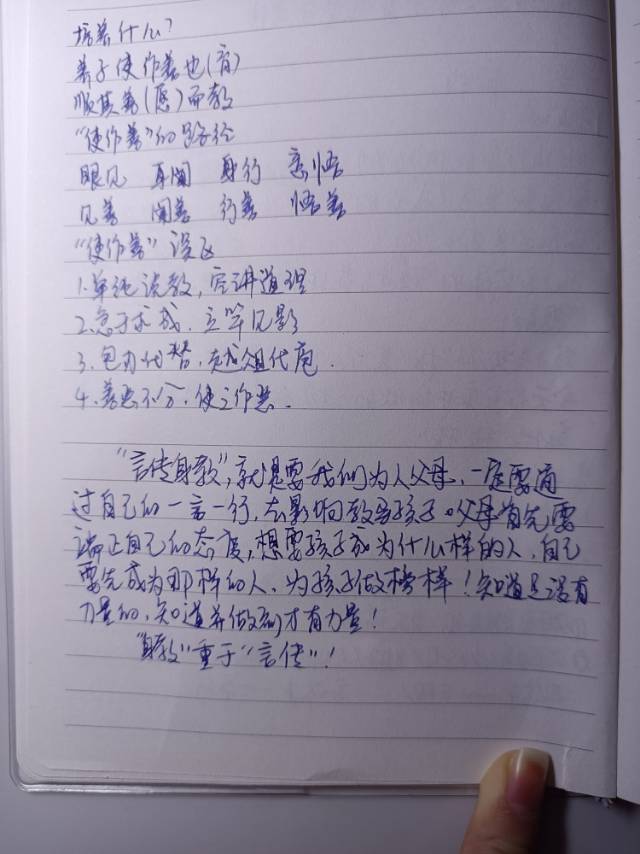 培养什么?
养子使作善也(育)
顺其善(愿)而教
"使作善"的路径
眼见 耳闻 身行 意悟
见善 闻善 行善 悟善
"使作善"误区
1.单纯说教,空讲道理
2.急于求成.立竿见影
3.包办代替,越俎代庖.
4.善恶不分,使之作恶.
"言传身教",就是要我们为人父母,一定要通
过自己的一言一行,去影响教育孩子。父母首先要
端正自己的态度,想要孩子成为什么样的人,自己
要先成为那样的人,为孩子做榜样!知道是没有
力量的,知道并做到才有力量!
"身教"重于"言传"!